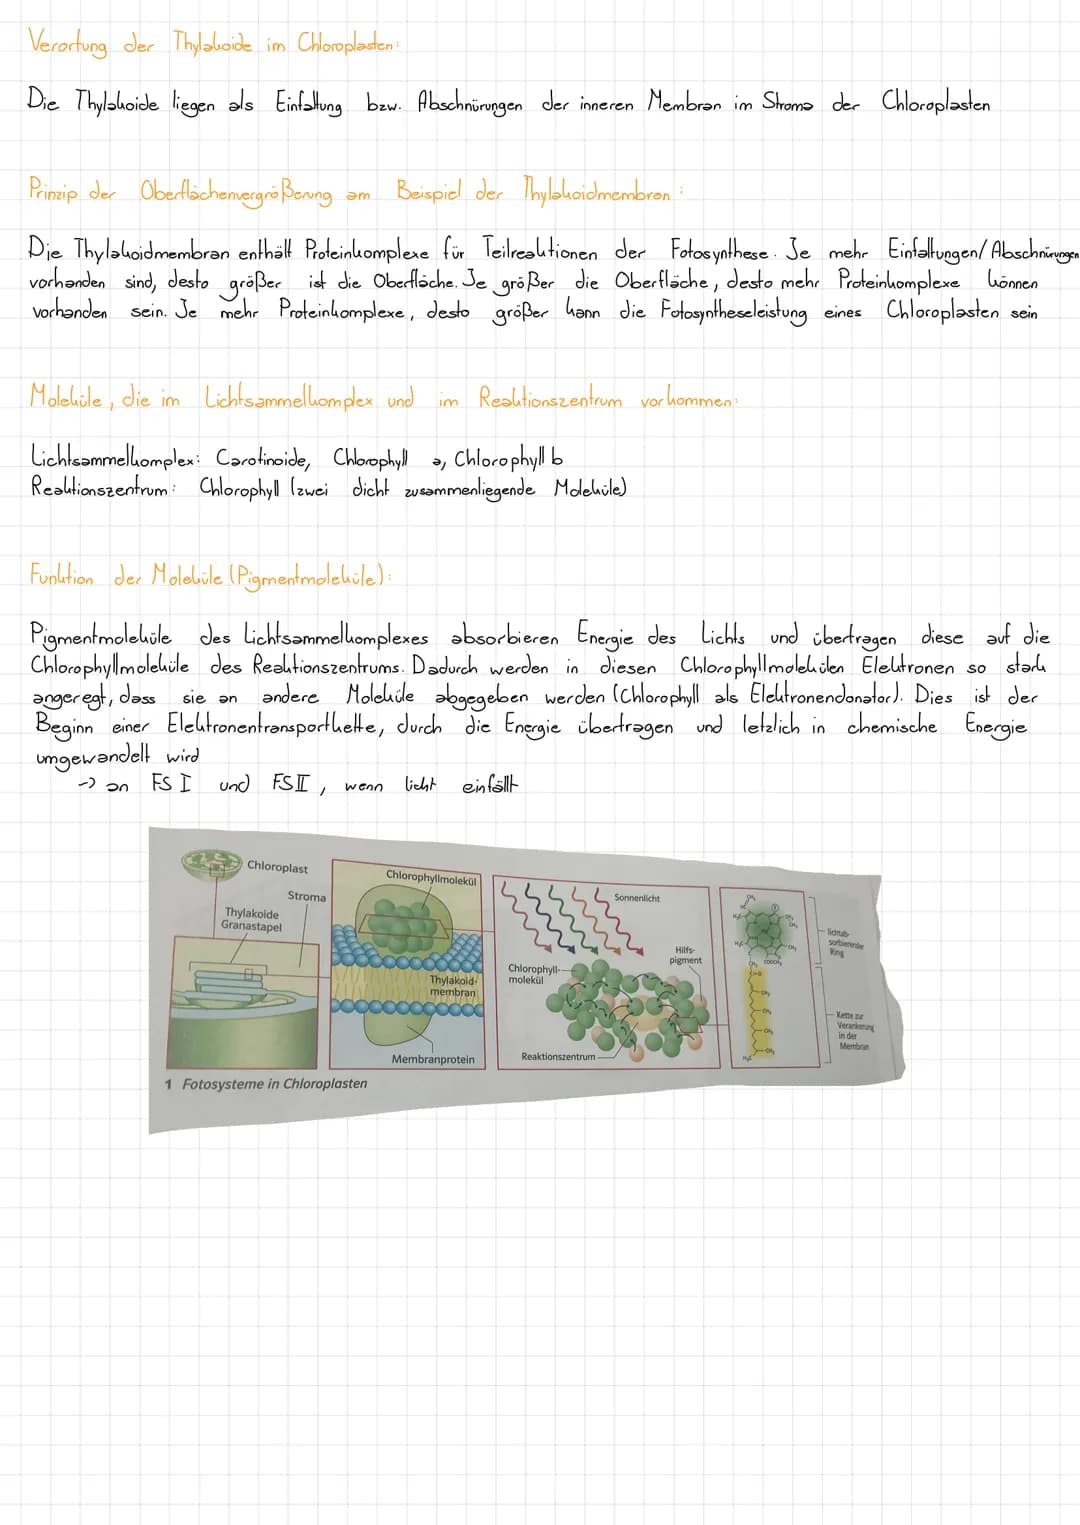 Verortung der Thylakoide im Chloroplasten:
Die Thylakoide liegen als Einfaltung bzw. Abschnürungen der inneren Membran im Stroma der Chloroplasten
Prinzip der Oberflächenvergrößerung am Beispiel der Thylakoidmembran:
Die Thylakoidmembran enthält Proteinkomplexe für Teilreaktionen der Fotosynthese. Je mehr Einfaltungen/Abschnürungen
vorhanden sind, desto größer ist die Oberfläche. Je größer die Oberfläche, desto mehr Proteinkomplexe können
vorhanden sein. Je mehr Proteinkomplexe, desto größer kann die Fotosyntheseleistung eines Chloroplasten sein
Moleküle, die im Lichtsammelkomplex und im Reaktionszentrum vorkommen:
Lichtsammelkomplex: Carotinoide, Chlorophyll a, Chlorophyll b
Reaktionszentrum: Chlorophyll (zwei dicht zusammenliegende Moleküle)
Funktion der Moleküle (Pigmentmoleküle):
Pigmentmoleküle des Lichtsammelkomplexes absorbieren Energie des Lichts und übertragen diese auf die
Chlorophyllmoleküle des Reaktionszentrums. Dadurch werden in diesen Chlorophyllmolekülen Elektronen so stark
angeregt, dass sie an andere Moleküle abgegeben werden (Chlorophyll als Elektronendonator). Dies ist der
Beginn einer Elektronentransportkette, durch die Energie übertragen und letzlich in chemische Energie
umgewandelt wird
-> an FS I und FS II, wenn licht einfällt
Chloroplast
Stroma
Thylakoide
Granastapel
Chlorophyllmolekül
Thylakoid-
membran
Membranprotein
Sonnenlicht
Hilfs-
pigment
Chlorophyll-
molekül
Reaktionszentrum
lichtab-
sorbierender
Ring
Kette zur
Verankerung
in der
Membran
1 Fotosysteme in Chloroplasten